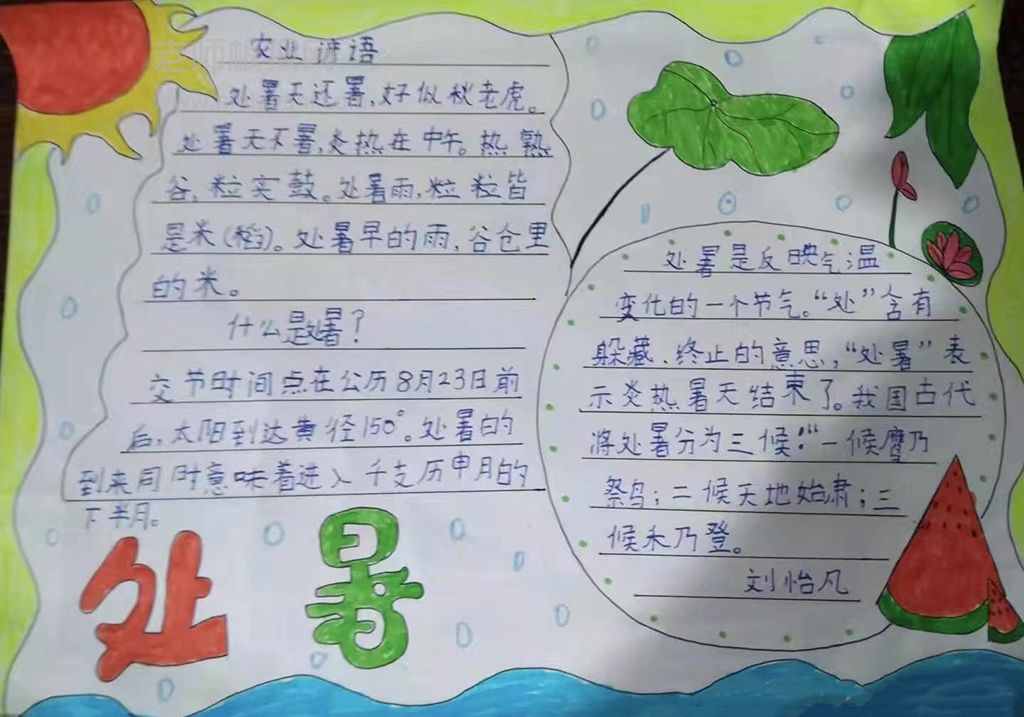 农业谚语
处暑天还暑,好似秋老虎。
处暑天不暑,炎热在中午。热熟
谷,粒实鼓。处暑雨,粒粒皆
是米(稻)。处暑早的雨,谷仓里
的米。
什么是处暑?
交节时间点在公历8月23日前
后,太阳到达黄径150°。处暑的
到来同时意味着进入干支历申月的
下半月。
处暑
处暑是反映气温
变化的一个节气。“处”含有
躲藏、终止的意思,“处暑”表
示炎热暑天结束了。我国古代
将处暑分为三候:“一候鹰乃
祭鸟;二候天地始肃;三
候禾乃登。
刘怡凡